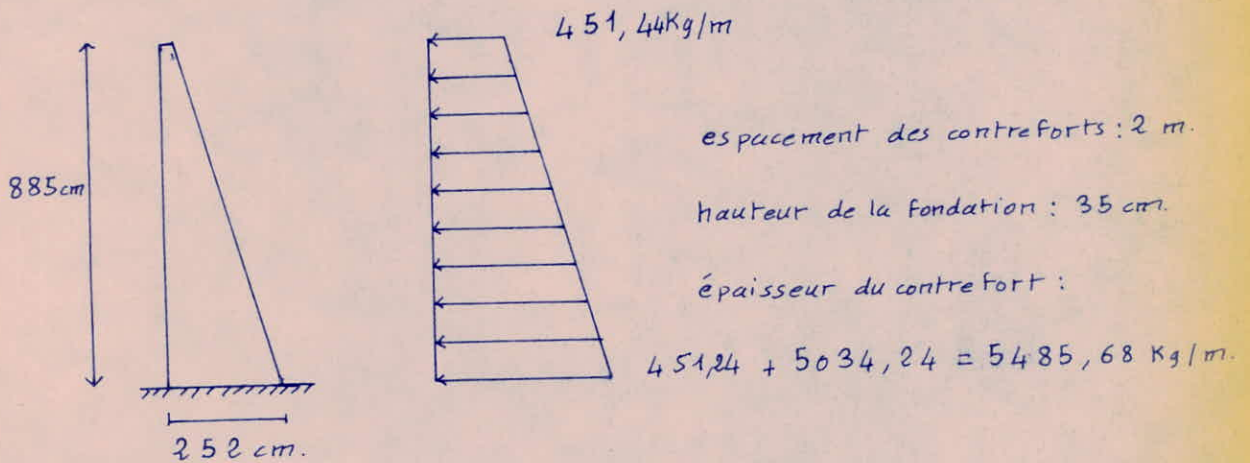 451,44Kg/m
espacement des contreforts : 2 m.
885cm
hauteur de la fondation : 35 cm.
épaisseur du contrefort :
451,24 + 5034,24 = 5485,68 Kg/m.
252 cm.